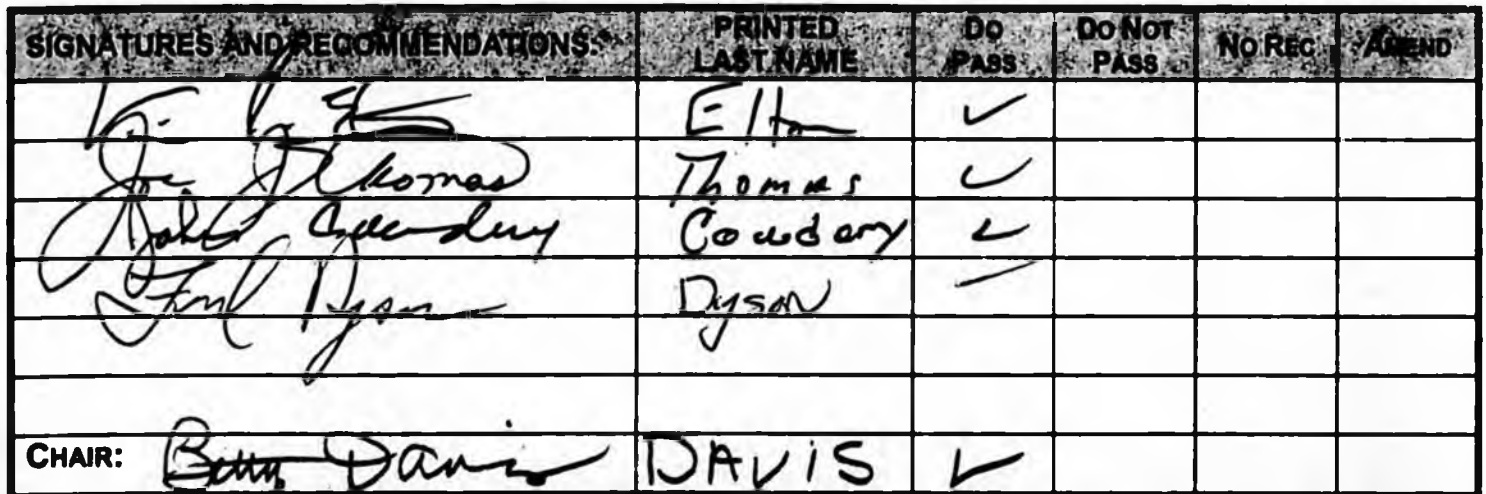 SIGNATURES AND RECOMMENDATIONS: PRINTED LAST NAME DO PASS DO NOT PASS NO REC AMEND
Elton ✓
Joe J Thomas Thomas ✓
John Cowdery Cowdery ✓
Fred Dyson Dyson
CHAIR: Betty Davis DAVIS ✓